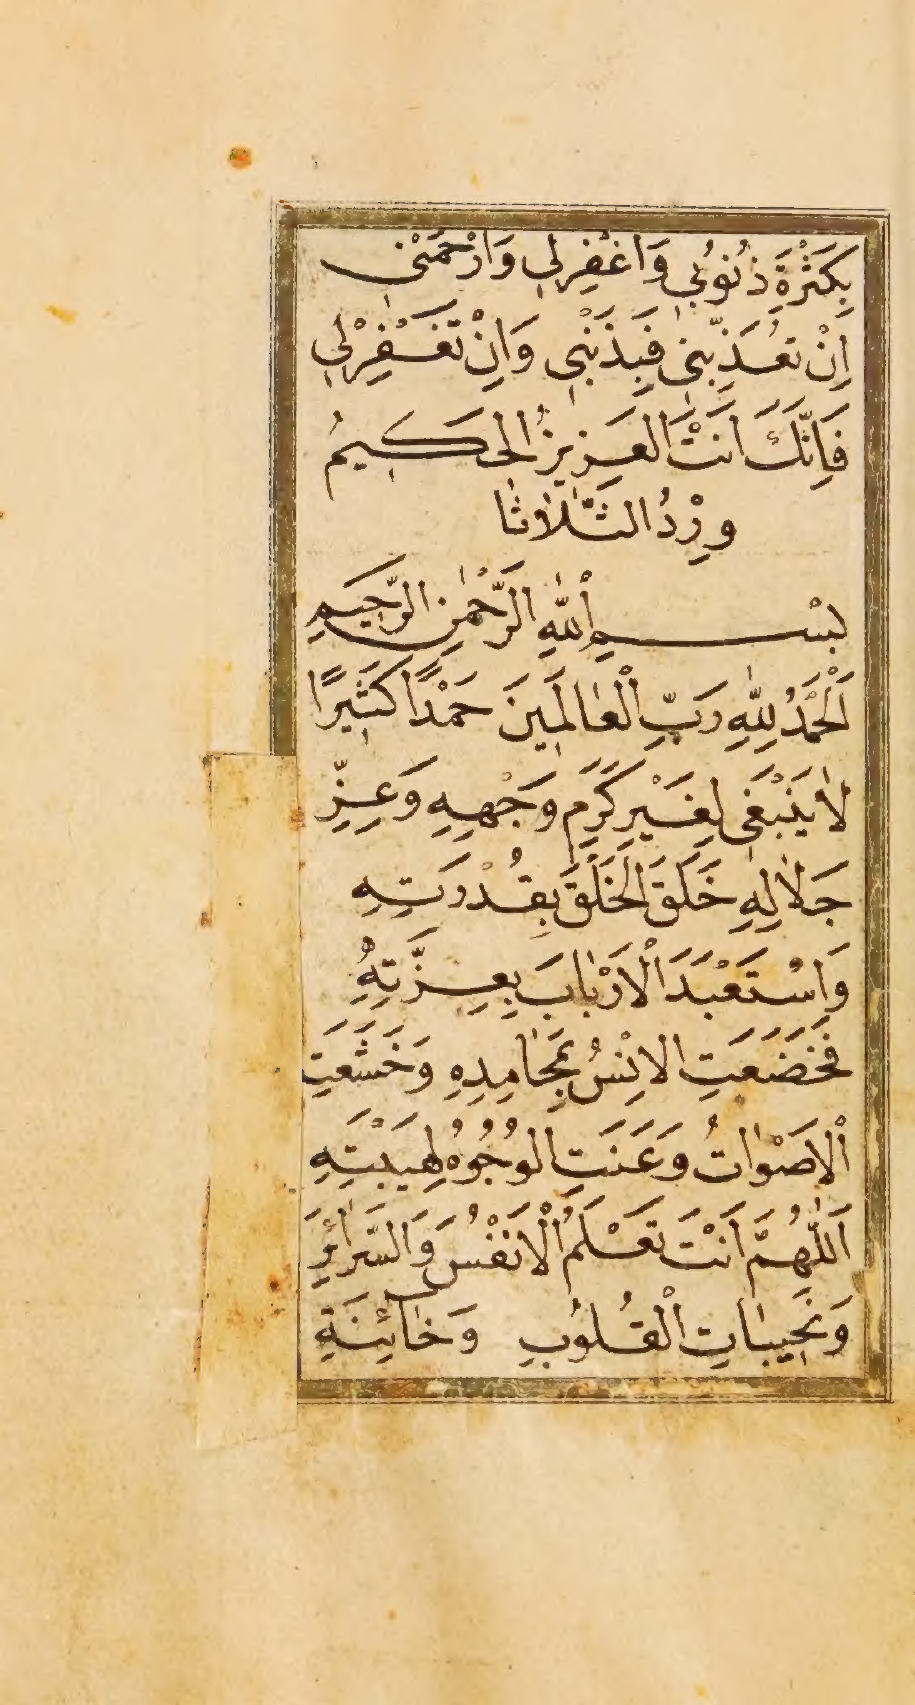 بِكَثْرَةِ ذُنُوبِي وَاغْفِرلِي وَارْحَمْنْى
اِنْ تُعَذِّبْنِى فَبِذَنْبِى وَاِنْ تَغْفِرْلِى
فَاِنَّكَ اَنْتَ الْعَزِيزُ الْحَكِيمُ
وِرْدُ الثَّلَاثَا
بِسْمِ اللّٰهِ الرَّحْمٰنِ الرَّحِيمِ
اَلْحَمْدُ لِلّٰهِ رَبِّ الْعَالَمِينَ حَمْدًا كَثِيرًا
لَا يَنْبَغِى لِغَيْرِ كَرَمِ وَجْهِهِ وَعِزِّ
جَلَالِهِ خَلَقَ الْخَلْقَ بِقُدْرَتِهِ
وَاسْتَعْبَدَ الْاَرْبَابَ بِعِزَّتِهِ
فَخَضَعَتِ الاِنْسُ بِمَحَامِدِهِ وَخَشَعَتِ
الْاَصْوَاتُ وَعَنَتِ الوُجُوُهُ لِهَيْبَتِهِ
اَللّٰهُمَّ اَنْتَ تَعْلَمُ الْاَنْفُسَ وَالسَّرَائِرَ
الْقُلُوبِ وَخَائِنَةِ